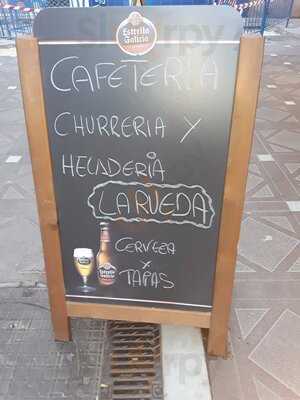 Estrella
Galicia
CAFETERIA
CHURRERIA Y
HELADERIA
LA RUEDA
CERVEZA
Y
TAPAS